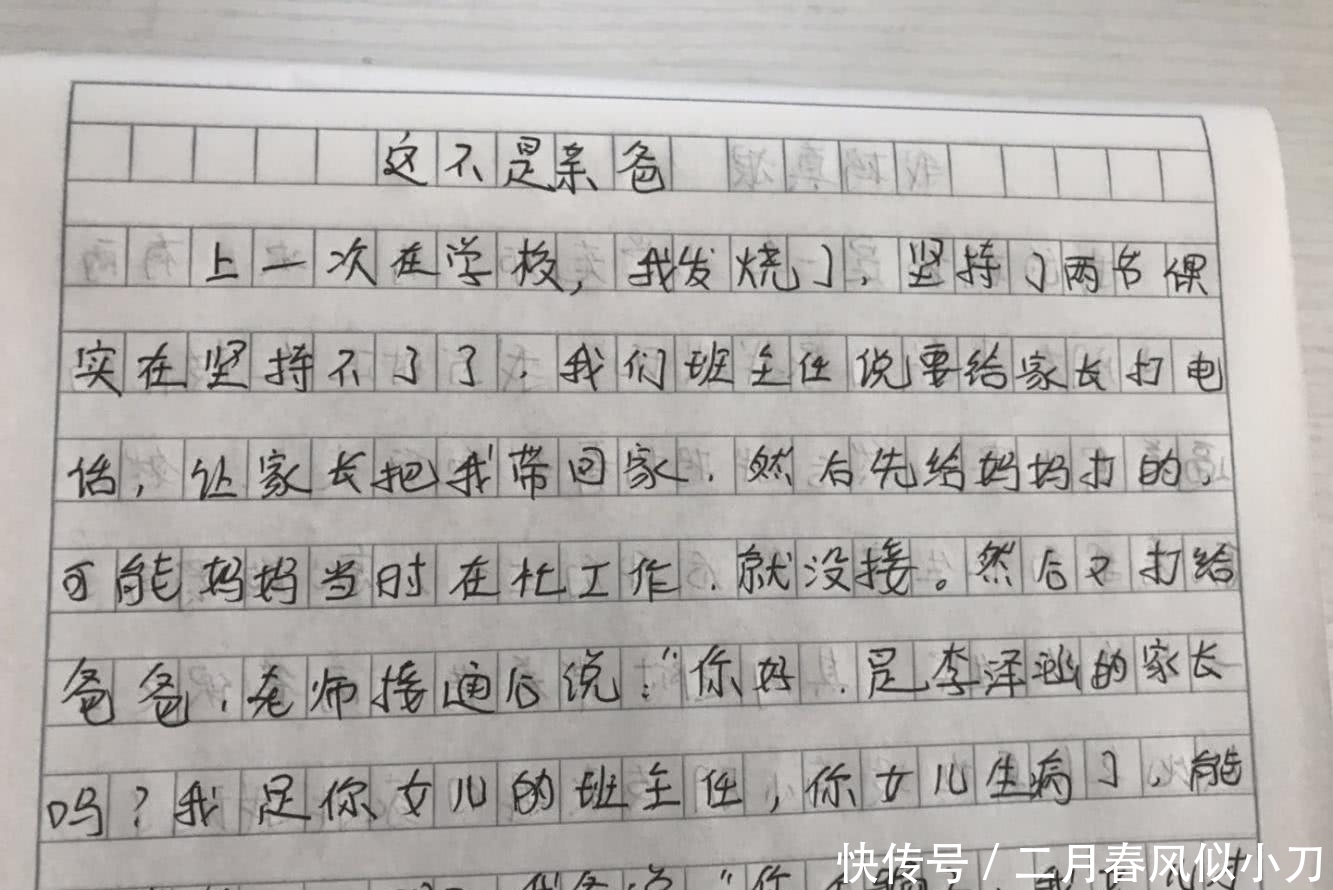 这不是亲爸
上一次在学校，我发烧了，坚持了两节课
实在坚持不了了，我们班主任说要给家长打电
话，让家长把我带回家，然后先给妈妈打的，
可能妈妈当时在忙工作，就没接。然后又打给
爸爸，老师接通后说："你好，是李泽涵的家长
吗？我是你女儿的班主任，你女儿生病了，能
快传号／二月春风似小刀